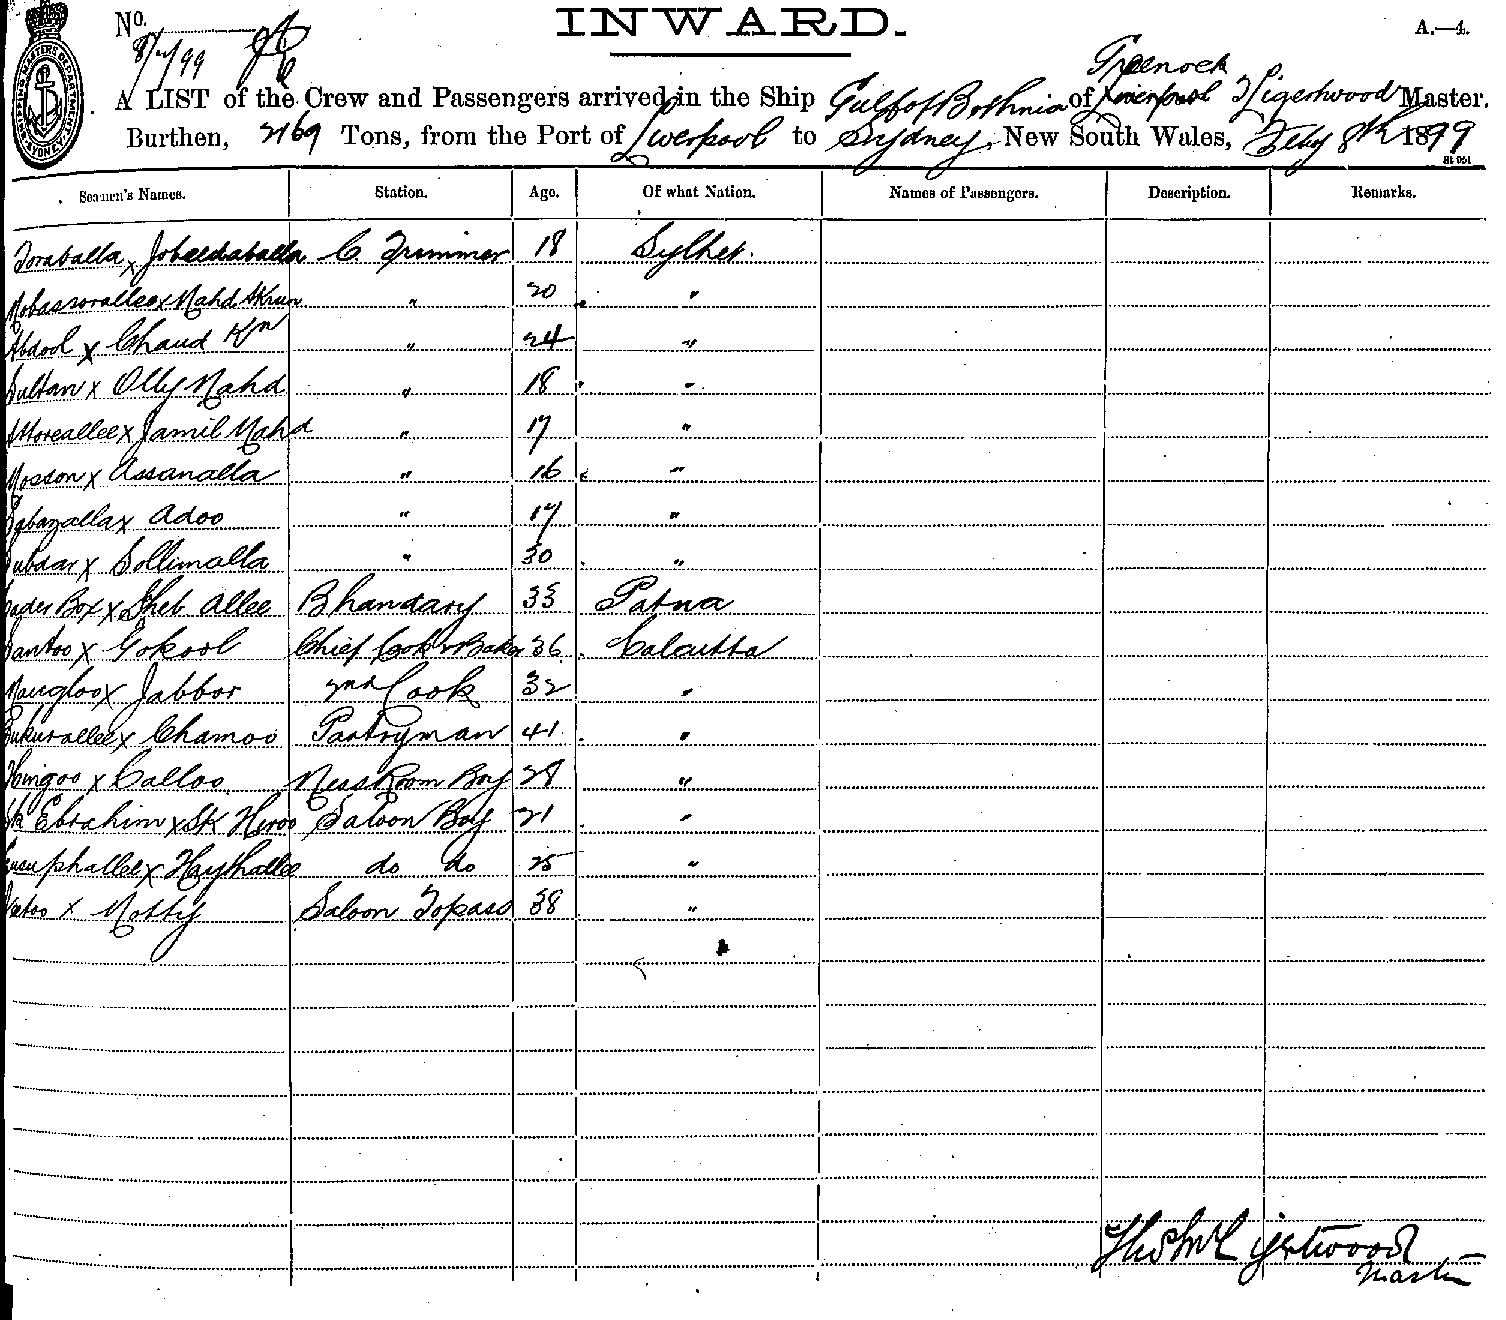 INWARD.
No.
8/2/99
A.—4.
Greenock
A LIST of the Crew and Passengers arrived in the Ship Gulf of Bothnia of Liverpool T Ligertwood Master.
Burthen, 2169 Tons, from the Port of Liverpool to Sydney, New South Wales, Feby 8th 1899
Seamen's Names. Station. Age. Of what Nation. Names of Passengers. Description. Remarks.
Toraballa x C. Trimmer 18 Sylhet.
Mobassorallee x Mahd Akrum " 20 "
Abdool x Chaud Kn " 24 "
Sultan x Olly Mahd " 18 "
Attoreallee x Jamil Mahd " 17 "
Mosson x Assanalla " 16 "
x Adoo " 17 "
Subdar x Sollimalla " 30 "
Kader Box x Sheb Allee Bhandary 35 Patna
Santoo x Gokool Chief Cook & Baker 36 Calcutta
Mungloo x Jabbor 2nd Cook 32 "
Sukurallee x Chamoo Pantryman 41 "
Hingoo x Calloo Mess Room Boy 28 "
Sk Ebrahim x Sk Heroo Saloon Boy 21 "
Eusuphallee x Haythallee do do 25 "
x Motty Saloon Topass 38 "
Thos McLigertwood
Master